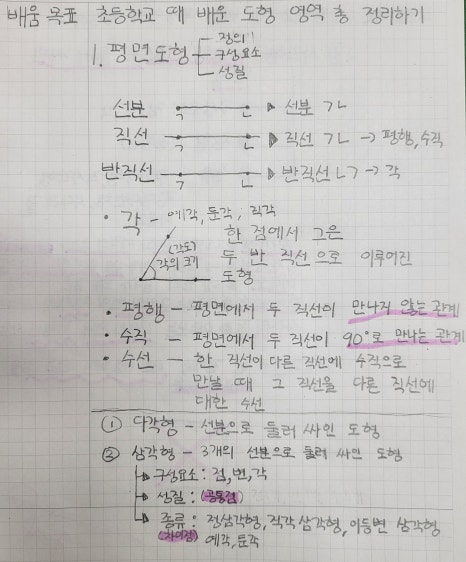 배움 목표 초등학교 때 배운 도형 영역 총 정리하기
1. 평면도형
정의
구성요소
성질
선분 ㄱ ㄴ 선분 ㄱㄴ
직선 ㄱ ㄴ 직선 ㄱㄴ → 평행, 수직
반직선 ㄱ ㄴ 반직선 ㄴㄱ → 각
• 각 - 예각, 둔각, 직각
한 점에서 그은
두 반 직선으로 이루어진
도형
(각도)
각의 크기
• 평행 - 평면에서 두 직선이 만나지 않는 관계
• 수직 - 평면에서 두 직선이 90°로 만나는 관계
• 수선 - 한 직선이 다른 직선에 수직으로
만날 때 그 직선을 다른 직선에
대한 수선
① 다각형 - 선분으로 둘러 싸인 도형
② 삼각형 - 3개의 선분으로 둘러 싸인 도형
구성요소 : 점, 변, 각
성질 : (공통점)
종류 : 정삼각형, 직각 삼각형, 이등변 삼각형
(차이점) 예각, 둔각